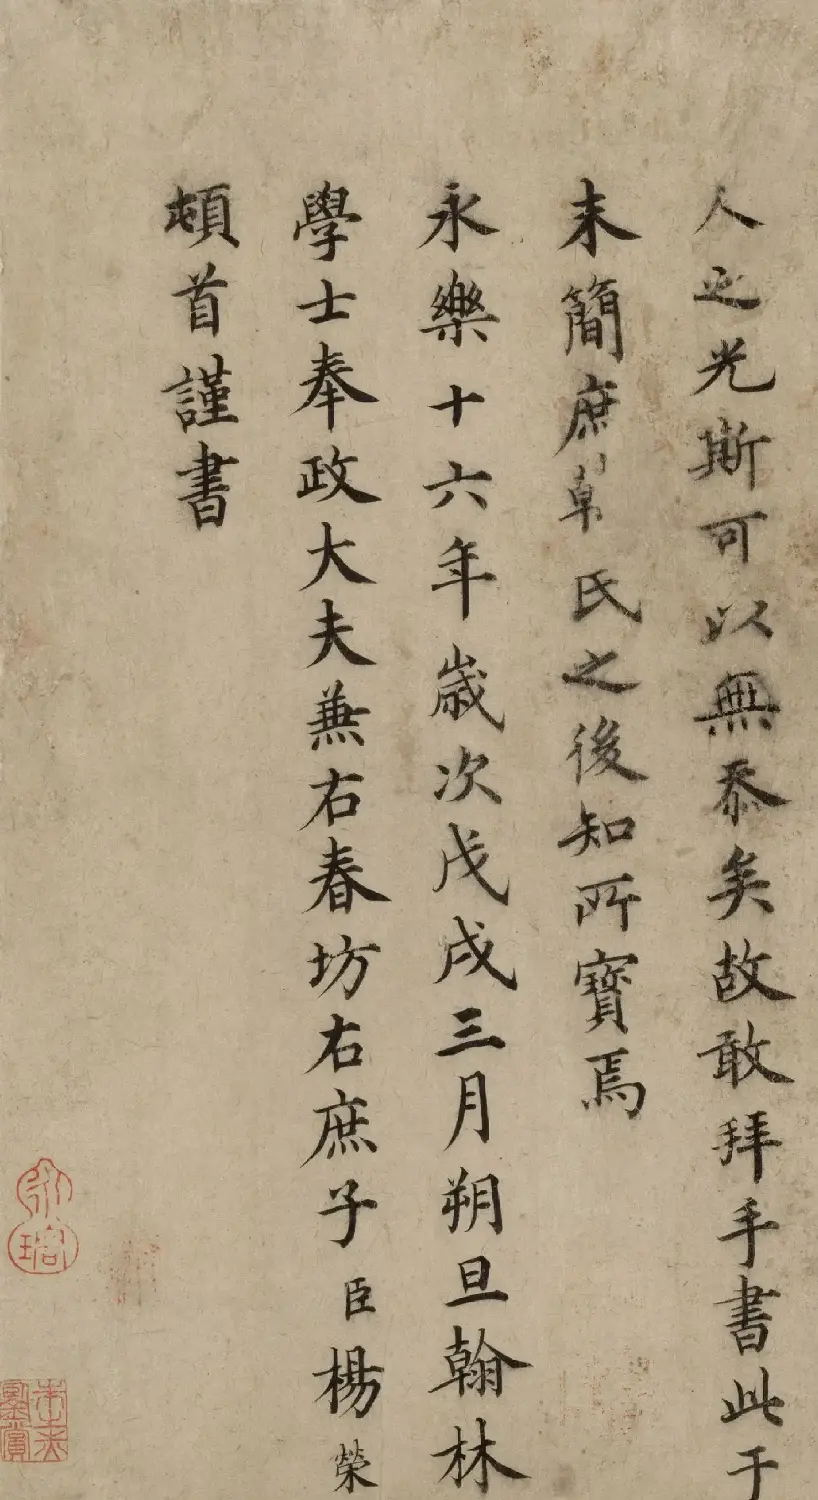 人之光斯可以無忝矣故敢拜手書此于
末簡庶卓氏之後知所寶焉
永樂十六年歲次戊戌三月朔旦翰林
學士奉政大夫兼右春坊右庶子臣楊榮
頓首謹書